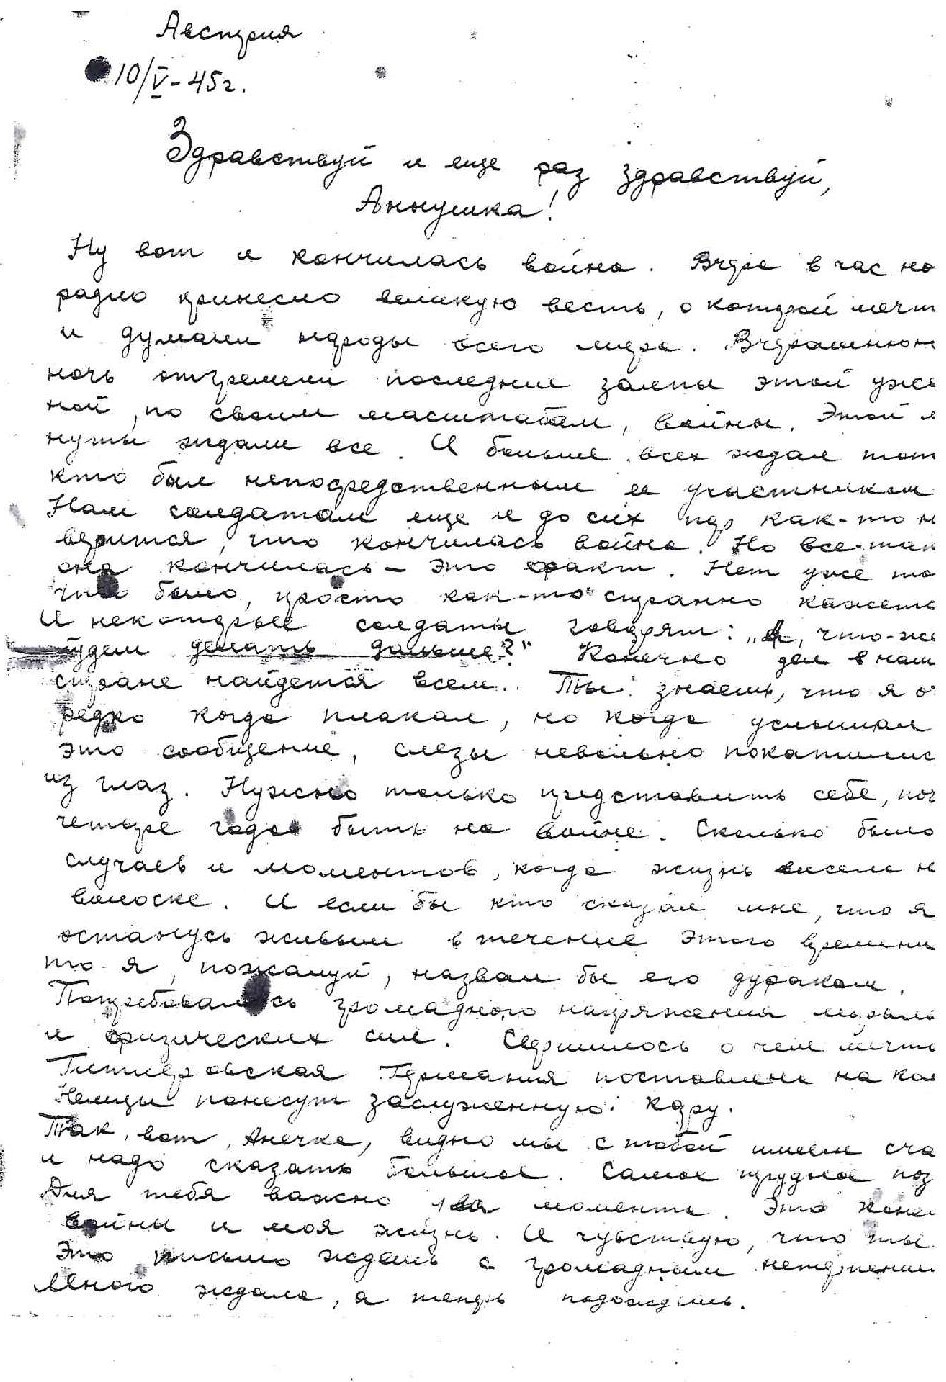 Австрия
10/V-45г.
Здравствуй и еще раз здравствуй,
Аннушка!
Ну вот и кончилась война. Вчера в час но
радио принесло великую весть, о которой мечт
и думали народы всего мира. Вчерашнюю
ночь отгремели последние залпы этой ужа
ной, по своим масштабам, войны. Этой м
нуты ждали все. И больше всех ждал тот
кто был непосредственным ее участником
Нам солдатам еще и до сих пор как-то н
верится, что кончилась война. Но все-так
она кончилась – это факт. Нет уже то
что было, просто как-то странно кажетс
И некоторые солдаты говорят: „А, что-же
будем делать дальше?" Конечно дел в наш
стране найдется всем. Ты знаешь, что я о
редко когда плакал, но когда услышал
это сообщение, слезы невольно покатилис
из глаз. Нужно только представить себе, поч
четыре года быть на войне. Сколько было
случаев и моментов, когда жизнь висела н
волоске. И если бы кто сказал мне, что я
останусь живым в течение этого времени
то я, пожалуй, назвал бы его дураком.
Потребовалось громадного напряжения мораль
и физических сил. Свершилось о чем мечт
Гитлеровская Германия поставлена на кол
Немцы понесут заслуженную кару.
Так, вот, Анечка, видно мы с тобой имеем сча
и надо сказать большое. Самое трудное поз
Для тебя важно два момента. Это коне
войны и моя жизнь. И чувствую, что ты
Это письмо ждешь с громадным нетерпени
Много ждала, а теперь подождешь.